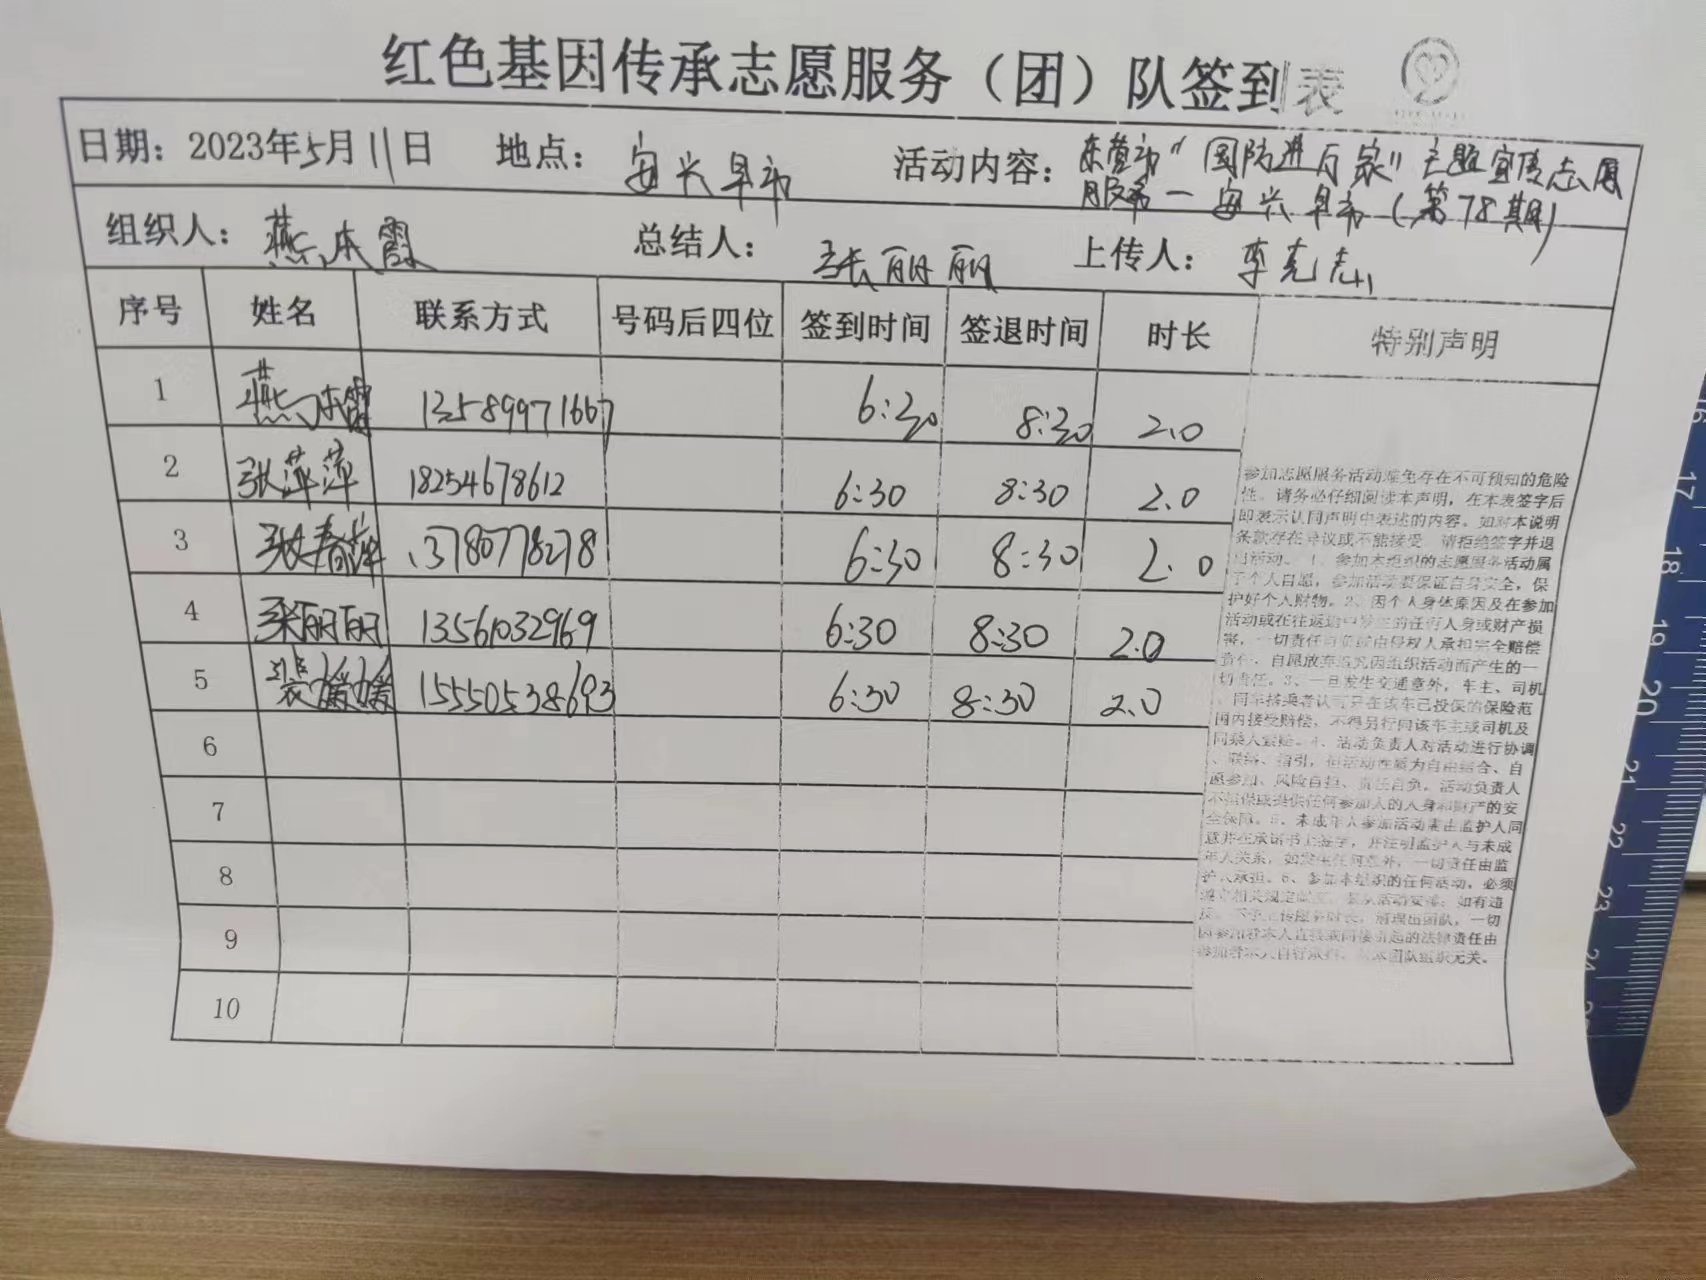 红色基因传承志愿服务（团）队签到表
日期：2023年5月11日 地点：安兴早市 活动内容：东营市“国防进万家”主题宣传志愿
服务—安兴早市（第78期）
组织人：燕本霞 总结人：张丽丽 上传人：李克志
序号 姓名 联系方式 号码后四位 签到时间 签退时间 时长 特别声明
1 燕本霞 13589971667 6:30 8:30 2.0
2 张萍萍 18254678612 6:30 8:30 2.0
3 张春萍 13780778278 6:30 8:30 2.0
4 张丽丽 13561032969 6:30 8:30 2.0
5 裴媛媛 15550538693 6:30 8:30 2.0
6
7
8
9
10
参加志愿服务活动难免存在不可预知的危险
性。请务必仔细阅读本声明，在本表签字后
即表示认同声明中表述的内容。如对本说明
条款存在异议或不能接受，请拒绝签字并退
出活动。1、参加本组织的志愿服务活动属
于个人自愿，参加活动要保证自身安全，保
护好个人财物。2、因个人身体原因及在参加
活动或在往返途中发生的任何人身或财产损
害，一切责任自负或由侵权人承担完全赔偿
责任，自愿放弃追究因组织活动而产生的一
切责任。3、一旦发生交通意外，车主、司机
、同车搭乘者认可只在该车已投保的保险范
围内接受赔偿，不得另行向该车主或司机及
同乘人索赔。4、活动负责人对活动进行协调
、联络、指引，但活动性质为自由结合、自
愿参加、风险自担、责任自负。活动负责人
不担保或提供任何参加人的人身和财产的安
全保障。5、未成年人参加活动需由监护人同
意并在承诺书上签字，并注明监护人与未成
年人关系，如发生任何意外，一切责任由监
护人承担。6、参加本组织的任何活动，必须
遵守相关规定 活动安排；如有违
反，不予上传服务时长，清理出团队，一切
因参加者本人直接或间接引起的法律责任由
参加者本人自行承担， 团队组织无关。
16
17
18
19
20
21
22
23
24